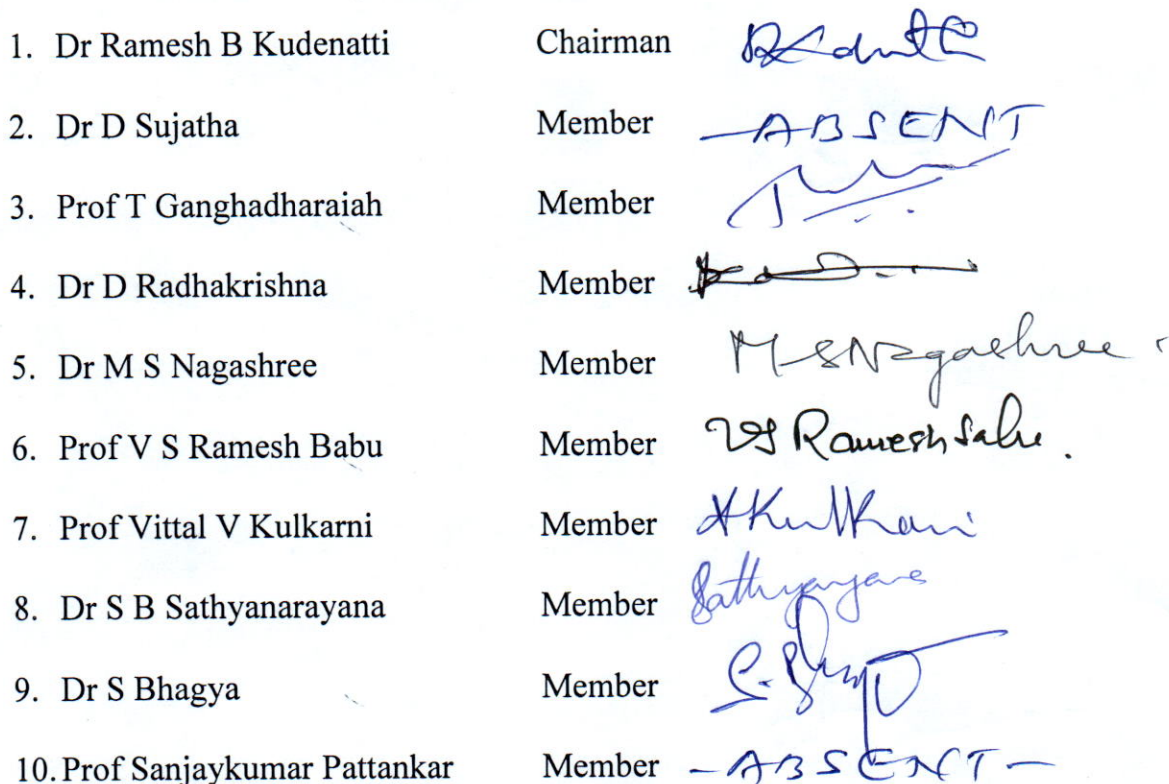 1. Dr Ramesh B Kudenatti Chairman
2. Dr D Sujatha Member -ABSENT
3. Prof T Ganghadharaiah Member
4. Dr D Radhakrishna Member
5. Dr M S Nagashree Member M S Nagashree
6. Prof V S Ramesh Babu Member VS Ramesh Babu.
7. Prof Vittal V Kulkarni Member Kulkarni
8. Dr S B Sathyanarayana Member
9. Dr S Bhagya Member
10. Prof Sanjaykumar Pattankar Member -ABSENT-